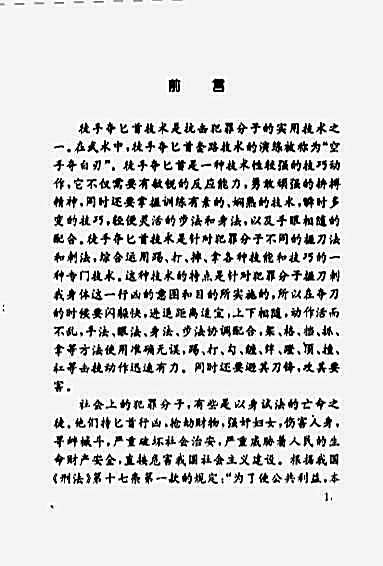 前言
徒手夺匕首技术是抗击犯罪分子的实用技术之
一。在武术中，徒手夺匕首套路技术的演练被称为“空
手夺白刃”。徒手夺匕首是一种技术性较强的技巧动
作，它不仅需要有敏锐的反应能力，勇敢顽强的拚搏
精神，同时还要掌握训练有素的、娴熟的技术，瞬时多
变的技巧，轻便灵活的步法和身法，以及手眼相随的
配合。徒手夺匕首技术是针对犯罪分子不同的握刀法
和刺法，综合运用踢、打、摔、拿各种技能和技巧的一
种专门技术。这种技术的特点是针对犯罪分子握刀刺
我身体这一行凶的意图和目的所实施的，所以在夺刀
的时候要闪躲快，进退距离适宜，上下相随，动作活而
不乱，手法、眼法、身法、步法协调配合，架、格、挡、抓、
拿等方法使用准确无误，踢、打、勾、缠、绊、蹬、顶、撞、
砸等击技动作迅速有力。同时还要避其刀锋，攻其要
害。
社会上的犯罪分子，有些是以身试法的亡命之
徒。他们持匕首行凶，抢劫财物，强奸妇女，伤害人身，
寻衅械斗，严重破坏社会治安，严重威胁着人民的生
命财产安全，直接危害我国社会主义建设。根据我国
《刑法》第十七条第一款的规定：“为了使公共利益，本
1.